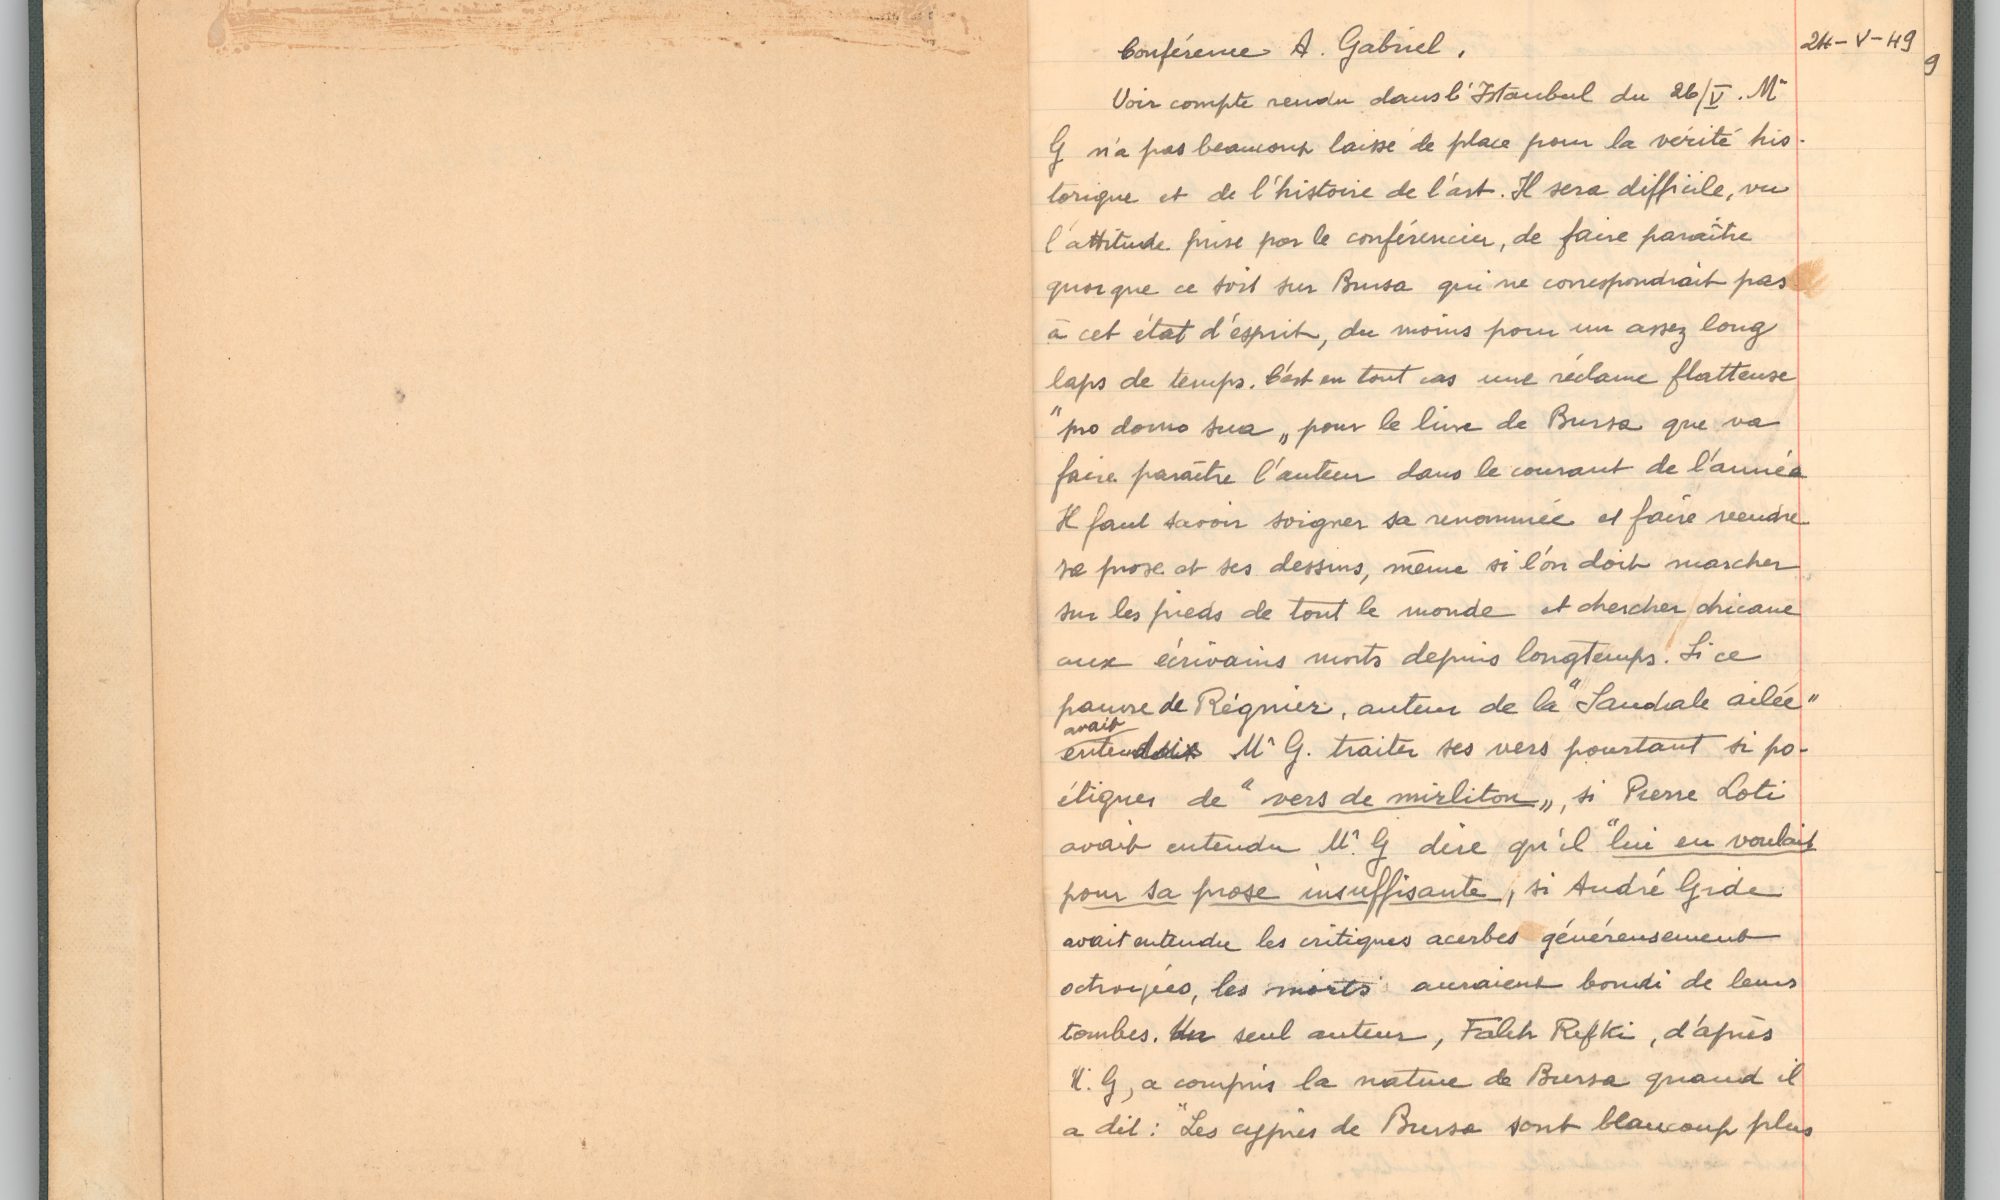 24-V-49
9
Conférence A. Gabriel.
Voir compte rendu dans l'Istanbul du 26/V. Mr
G n'a pas beaucoup laissé de place pour la vérité his-
torique et de l'histoire de l'art. Il sera difficile, vu
l'attitude prise par le conférencier, de faire paraître
quoique ce soit sur Bursa qui ne correspondrait pas
à cet état d'esprit, du moins pour un assez long
laps de temps. C'est en tout cas une réclame flatteuse
"pro domo sua„ pour le livre de Bursa que va
faire paraître l'auteur dans le courant de l'année
Il faut savoir soigner sa renommée et faire vendre
sa prose et ses dessins, même si l'on doit marcher
sur les pieds de tout le monde et chercher chicane
aux écrivains morts depuis longtemps. Si ce
pauvre de Régnier, auteur de la "Sandale ailée"
avait
entendu Mr G. traiter ses vers pourtant si po-
étiques de "vers de mirliton„, si Pierre Loti
avait entendu Mr. G dire qu'il "lui en voulait
pour sa prose insuffisante, si André Gide
avait entendu les critiques acerbes généreusement
octroyées, les morts auraient bondi de leurs
tombes. Un seul auteur, Faleh Refki, d'après
M. G, a compris la nature de Bursa quand il
a dit : "Les cyprès de Bursa sont beaucoup plus